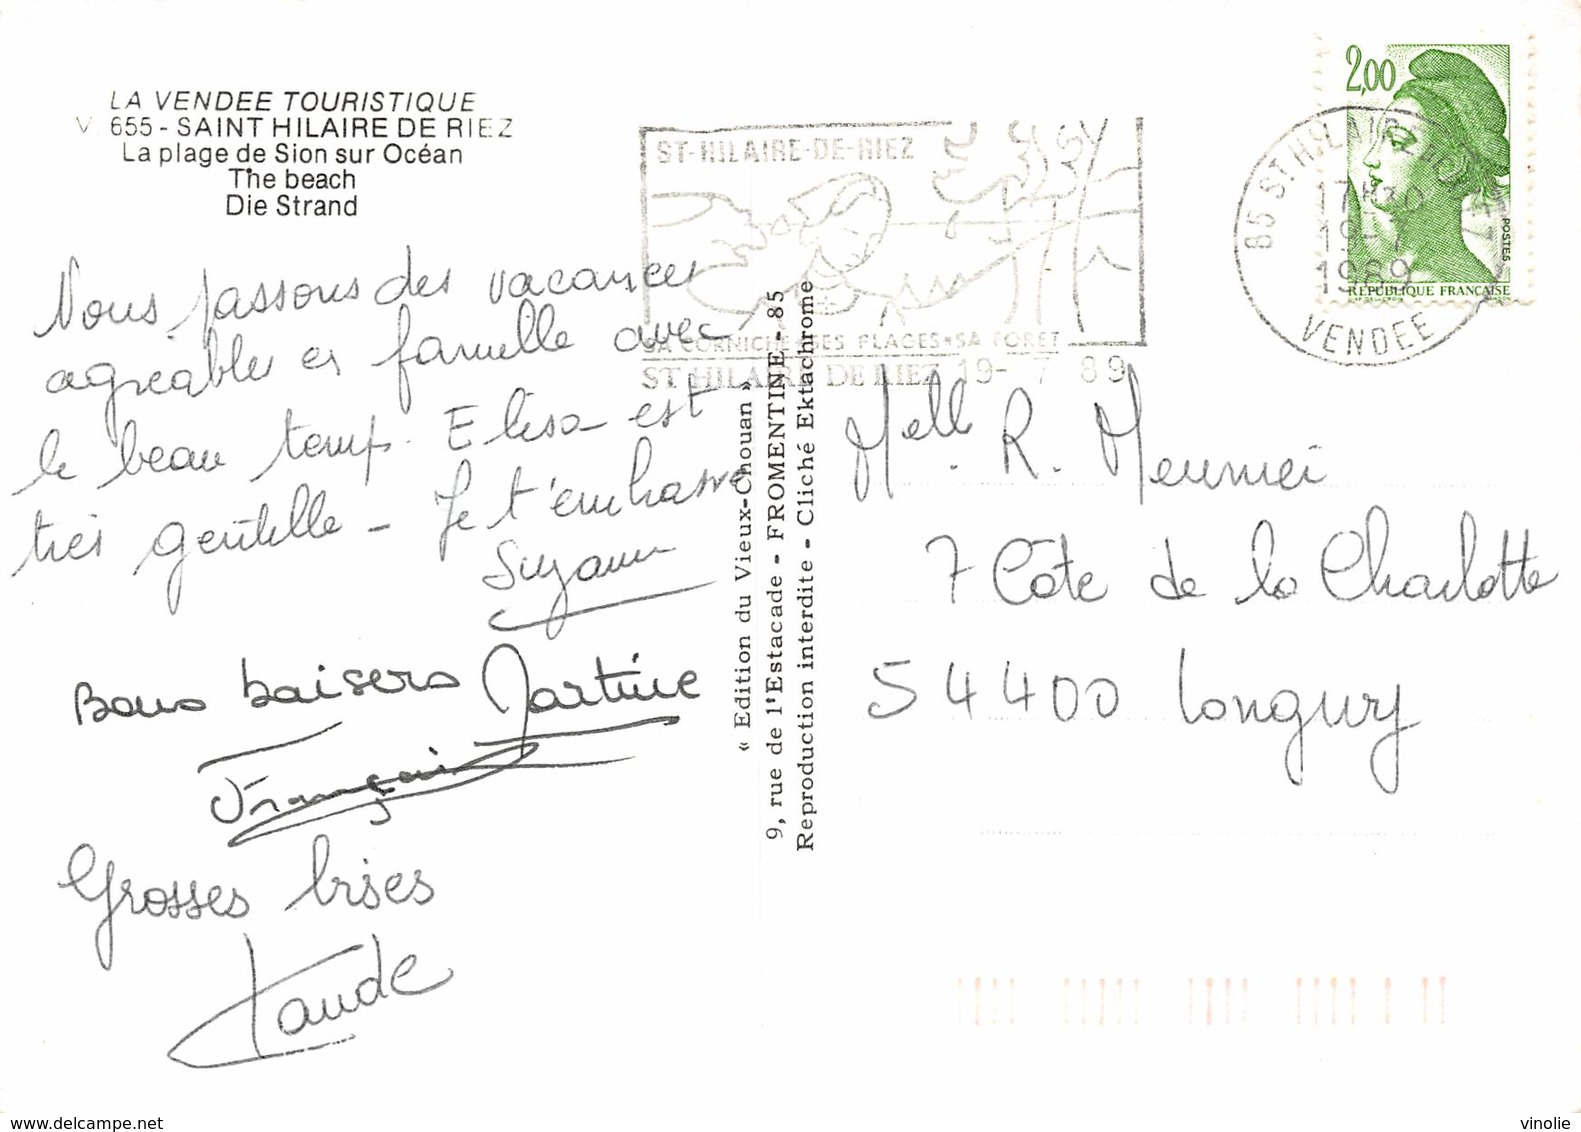 LA VENDEE TOURISTIQUE
V. 655 - SAINT HILAIRE DE RIEZ
La plage de Sion sur Océan
The beach
Die Strand
Nous passons des vacances
agréables en famille avec
le beau temps. Elisa est
très gentille - Je t'embrasse
Suzanne
Bons baisers Martine
François
Grosses bises
Claude
« Edition du Vieux-Chouan »
9, rue de l'Estacade - FROMENTINE - 85
Reproduction interdite - Cliché Ektachrome
ST-HILAIRE-DE-RIEZ
SA CORNICHE*SES PLAGES*SA FORET
ST HILAIRE DE RIEZ 19- 7 89
2,00
POSTES
REPUBLIQUE FRANÇAISE
85 ST HILAIRE DE RIEZ
17H30
19-7
1989
VENDEE
Melle. R. Meunier
7 Côte de la Charlotte
54400 Longwy
delcampe.net
vinolie